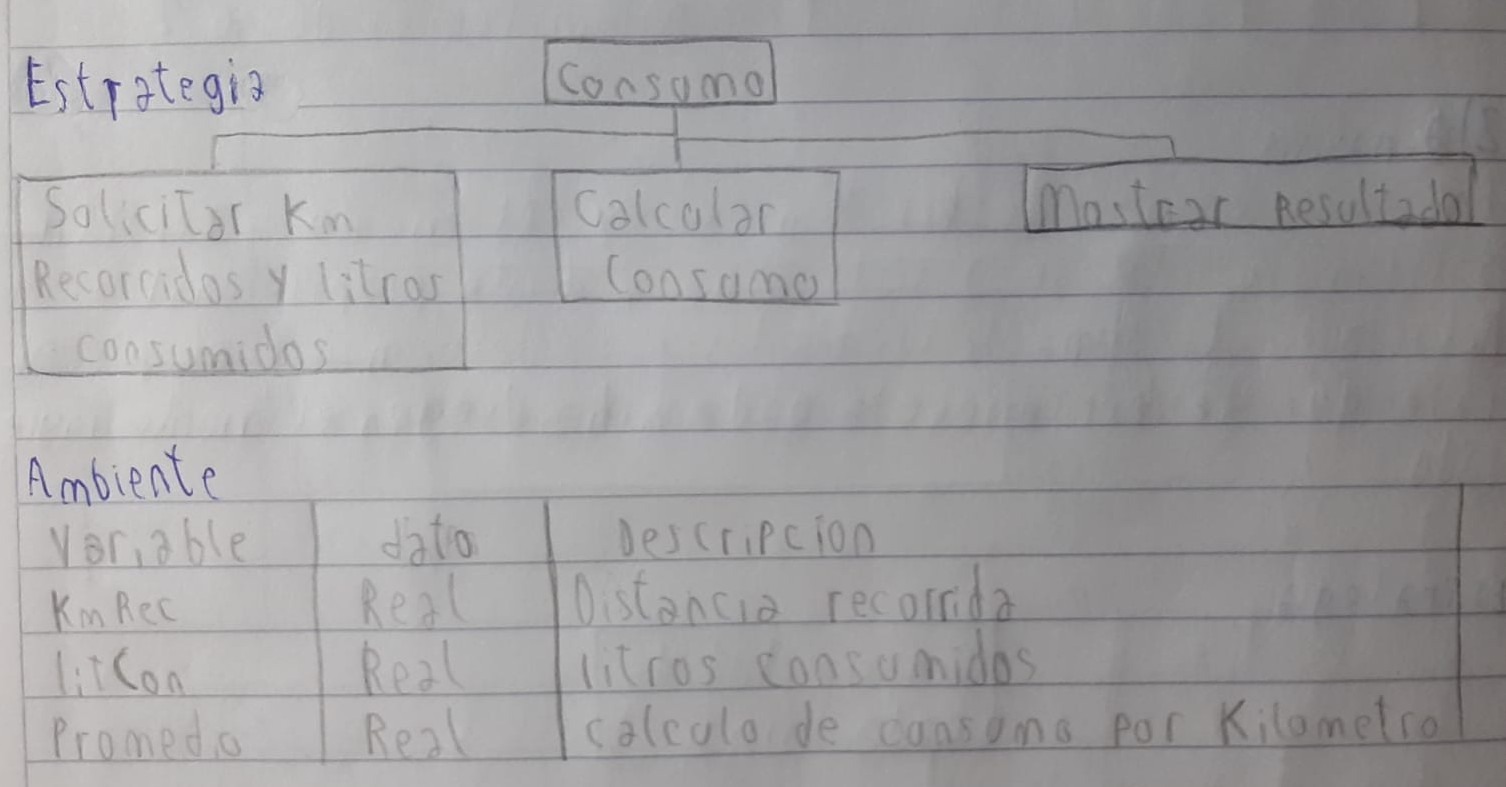 Estrategia
Consumo
Solicitar Km
Recorridos y litros
consumidos
Calcular
Consumo
Mostrar Resultado
Ambiente
Variable dato Descripcion
KmRec Real Distancia recorrida
litCon Real litros consumidos
Promedio Real calculo de consumo por Kilometro